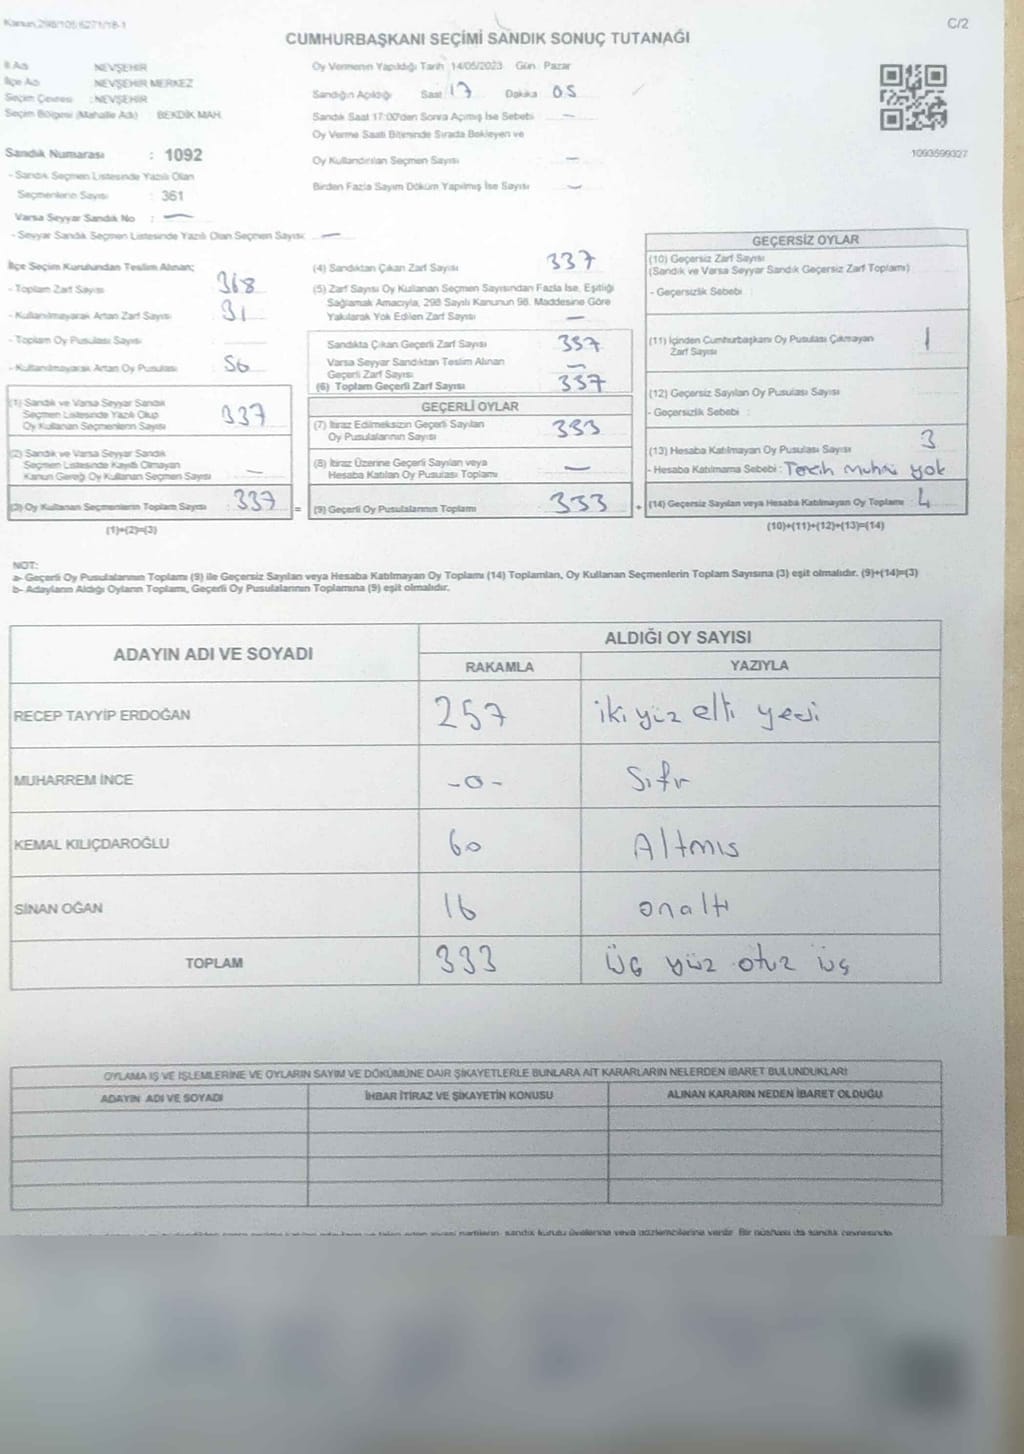 Kanun:298/105/6271/18-1
C/2
CUMHURBAŞKANI SEÇİMİ SANDIK SONUÇ TUTANAĞI
İl Adı NEVŞEHİR
İlçe Adı NEVŞEHİR MERKEZ
Seçim Çevresi :NEVŞEHİR
Seçim Bölgesi (Mahalle Adı) BEKDİK MAH.
Sandık Numarası : 1092
- Sandık Seçmen Listesinde Yazılı Olan
Seçmenlerin Sayısı : 361
Varsa Seyyar Sandık No : —
- Seyyar Sandık Seçmen Listesinde Yazılı Olan Seçmen Sayısı: —
Oy Vermenin Yapıldığı Tarih :14/05/2023 Gün : Pazar
Sandığın Açıldığı Saat : 17 Dakika 05
Sandık Saat 17:00'den Sonra Açılmış İse Sebebi —
Oy Verme Saati Bitiminde Sırada Bekleyen ve
Oy Kullandırılan Seçmen Sayısı —
Birden Fazla Sayım Döküm Yapılmış İse Sayısı —
1093599327
İlçe Seçim Kurulundan Teslim Alınan;
- Toplam Zarf Sayısı 368
- Kullanılmayarak Artan Zarf Sayısı 31
- Toplam Oy Pusulası Sayısı
- Kullanılmayarak Artan Oy Pusulası 56
(1) Sandık ve Varsa Seyyar Sandık
Seçmen Listesinde Yazılı Olup
Oy Kullanan Seçmenlerin Sayısı 337
(2) Sandık ve Varsa Seyyar Sandık
Seçmen Listesinde Kayıtlı Olmayan
Kanun Gereği Oy Kullanan Seçmen Sayısı —
(3) Oy Kullanan Seçmenlerin Toplam Sayısı : 337 =
(1)+(2)=(3)
(4) Sandıktan Çıkan Zarf Sayısı 337
(5) Zarf Sayısı Oy Kullanan Seçmen Sayısından Fazla İse, Eşitliği
Sağlamak Amacıyla, 298 Sayılı Kanunun 98. Maddesine Göre
Yakılarak Yok Edilen Zarf Sayısı —
Sandıkta Çıkan Geçerli Zarf Sayısı 337
Varsa Seyyar Sandıktan Teslim Alınan
Geçerli Zarf Sayısı —
(6) Toplam Geçerli Zarf Sayısı 337
GEÇERLİ OYLAR
(7) İtiraz Edilmeksizin Geçerli Sayılan
Oy Pusulalarının Sayısı 333
(8) İtiraz Üzerine Geçerli Sayılan veya
Hesaba Katılan Oy Pusulası Toplamı —
(9) Geçerli Oy Pusulalarının Toplamı 333 +
GEÇERSİZ OYLAR
(10) Geçersiz Zarf Sayısı
(Sandık ve Varsa Seyyar Sandık Geçersiz Zarf Toplamı)
- Geçersizlik Sebebi :
(11) İçinden Cumhurbaşkanı Oy Pusulası Çıkmayan
Zarf Sayısı 1
(12) Geçersiz Sayılan Oy Pusulası Sayısı
- Geçersizlik Sebebi :
(13) Hesaba Katılmayan Oy Pusulası Sayısı 3
- Hesaba Katılmama Sebebi : Tercih Mührü yok
(14) Geçersiz Sayılan veya Hesaba Katılmayan Oy Toplamı 4
(10)+(11)+(12)+(13)=(14)
NOT:
a- Geçerli Oy Pusulalarının Toplamı (9) ile Geçersiz Sayılan veya Hesaba Katılmayan Oy Toplamı (14) Toplamları, Oy Kullanan Seçmenlerin Toplam Sayısına (3) eşit olmalıdır. (9)+(14)=(3)
b- Adayların Aldığı Oyların Toplamı, Geçerli Oy Pusulalarının Toplamına (9) eşit olmalıdır.
ADAYIN ADI VE SOYADI ALDIĞI OY SAYISI
RAKAMLA YAZIYLA
RECEP TAYYİP ERDOĞAN 257 iki yüz elli yedi
MUHARREM İNCE -0- Sıfır
KEMAL KILIÇDAROĞLU 60 Altmış
SİNAN OĞAN 16 onaltı
TOPLAM 333 üç yüz otuz üç
OYLAMA İŞ VE İŞLEMLERİNE VE OYLARIN SAYIM VE DÖKÜMÜNE DAİR ŞİKAYETLERLE BUNLARA AİT KARARLARIN NELERDEN İBARET BULUNDUKLARI
ADAYIN ADI VE SOYADI İHBAR İTİRAZ VE ŞİKAYETİN KONUSU ALINAN KARARIN NEDEN İBARET OLDUĞU